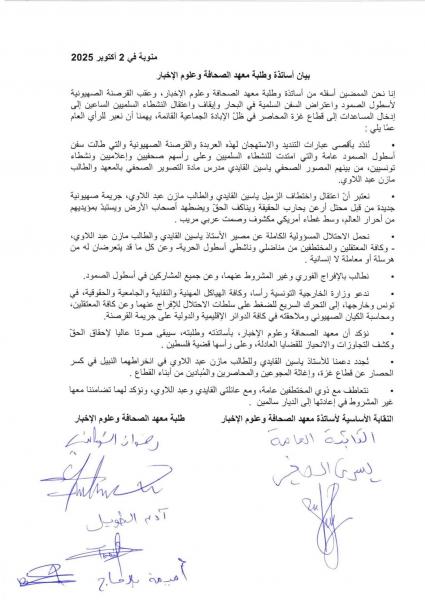 منوبة في 2 أكتوبر 2025
بيان أساتذة وطلبة معهد الصحافة وعلوم الإخبار
إنا نحن الممضين أسفله من أساتذة وطلبة معهد الصحافة وعلوم الإخبار، وعقب القرصنة الصهيونية
لأسطول الصمود واعتراض السفن السلمية في البحار وإيقاف واعتقال النشطاء السلميين الساعين إلى
إدخال المساعدات إلى قطاع غزة المحاصر في ظل الإبادة الجماعية القائمة، يهمنا أن نعبر للرأي العام
عمّا يلي:
• نُندّد بأقصى عبارات التنديد والاستهجان لهذه العربدة والقرصنة الصهيونية والتي طالت سفن
أسطول الصمود عامة والتي امتدت للنشطاء السلميين وعلى رأسهم صحفيين وإعلاميين ونشطاء
تونسيين، من بينهم المصور الصحفي ياسين القايدي مدرس مادة التصوير الصحفي بالمعهد والطالب
مازن عبد اللاوي.
• نعتبر أنّ اعتقال واختطاف الزميل ياسين القايدي والطالب مازن عبد اللاوي، جريمة صهيونية
جديدة من قبل محتل أرعن يحارب الحقيقة ويناكف الحقّ ويضطهد أصحاب الأرض ويستبدّ بمؤيديهم
من أحرار العالم، وسط غطاء أمريكي مكشوف وصمت عربي مريب.
• نحمل الاحتلال المسؤولية الكاملة عن مصير الأستاذ ياسين القايدي والطالب مازن عبد اللاوي،
- وكافة المعتقلين والمختطفين من مناضلي وناشطي أسطول الحرية- عن كل ما قد يتعرضان له من
هرسلة أو معاملة لا إنسانية.
• نطالب بالإفراج الفوري وغير المشروط عنهما، وعن جميع المشاركين في أسطول الصمود.
• ندعو وزارة الخارجية التونسية رأسا، وكافة الهياكل المهنية والنقابية والجامعية والحقوقية، في
تونس وخارجها، إلى التحرك السريع للضغط على سلطات الاحتلال للإفراج عنهما وعن كافة المعتقلين،
ومحاسبة الكيان الصهيوني وملاحقته في كافة الدوائر الإقليمية والدولية على جريمة القرصنة.
• نؤكد أن معهد الصحافة وعلوم الإخبار، بأساتذته وطلبته، سيبقى صوتا عاليا لإحقاق الحقّ
وكشف التجاوزات والانحياز للقضايا العادلة، وعلى رأسها قضية فلسطين.
• نُجدد دعمنا للأستاذ ياسين القايدي وللطالب مازن عبد اللاوي في انخراطهما النبيل في كسر
الحصار عن قطاع غزة، وإغاثة المجوعين والمحاصرين والمُبادين من أبناء القطاع.
• نتعاطف مع ذوي المختطفين عامة، ومع عائلتي القايدي وعبد اللاوي، ونؤكد لهما تضامننا معا
غير المشروط في إعادتها إلى الديار سالمين.
النقابة الأساسية لأساتذة معهد الصحافة وعلوم الإخبار
طلبة معهد الصحافة وعلوم الإخبار
الكاتبة العامة
يسرى
آدم الطويل
أميمة